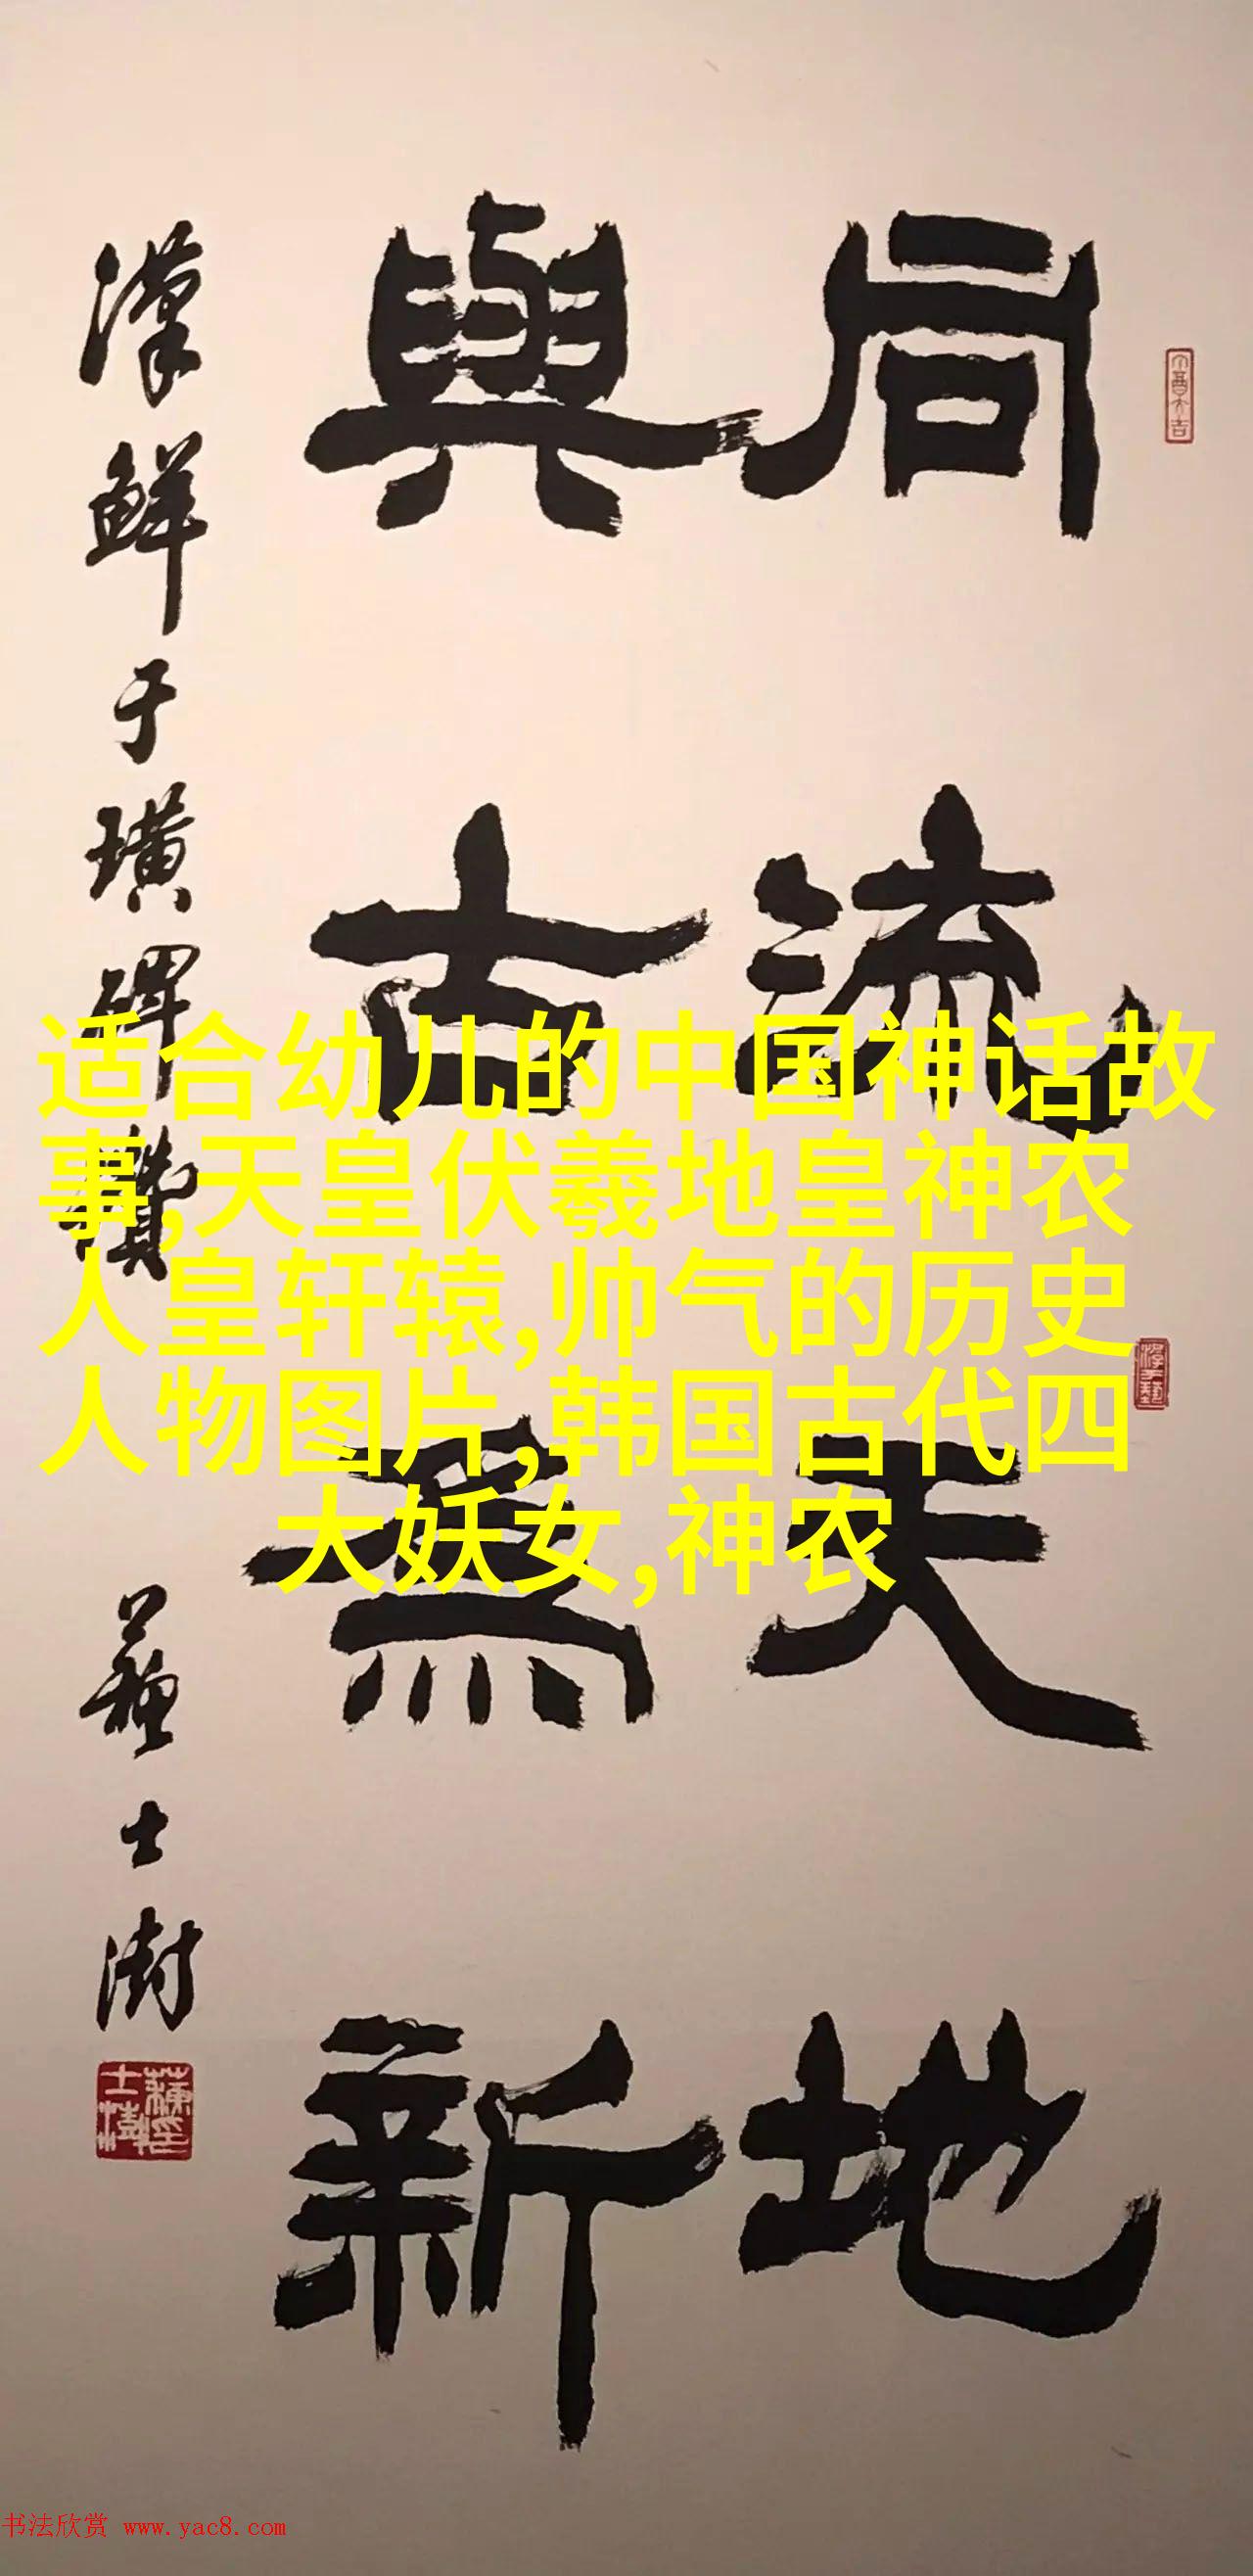 同流天地
興古為新
漢鮮于璜碑贊
蘇士澍
适合幼儿的中国神话故
事,天皇伏羲地皇神农
人皇轩辕,帅气的历史
人物图片,韩国古代四
大妖女,神农
书法欣赏 www.yac8.com